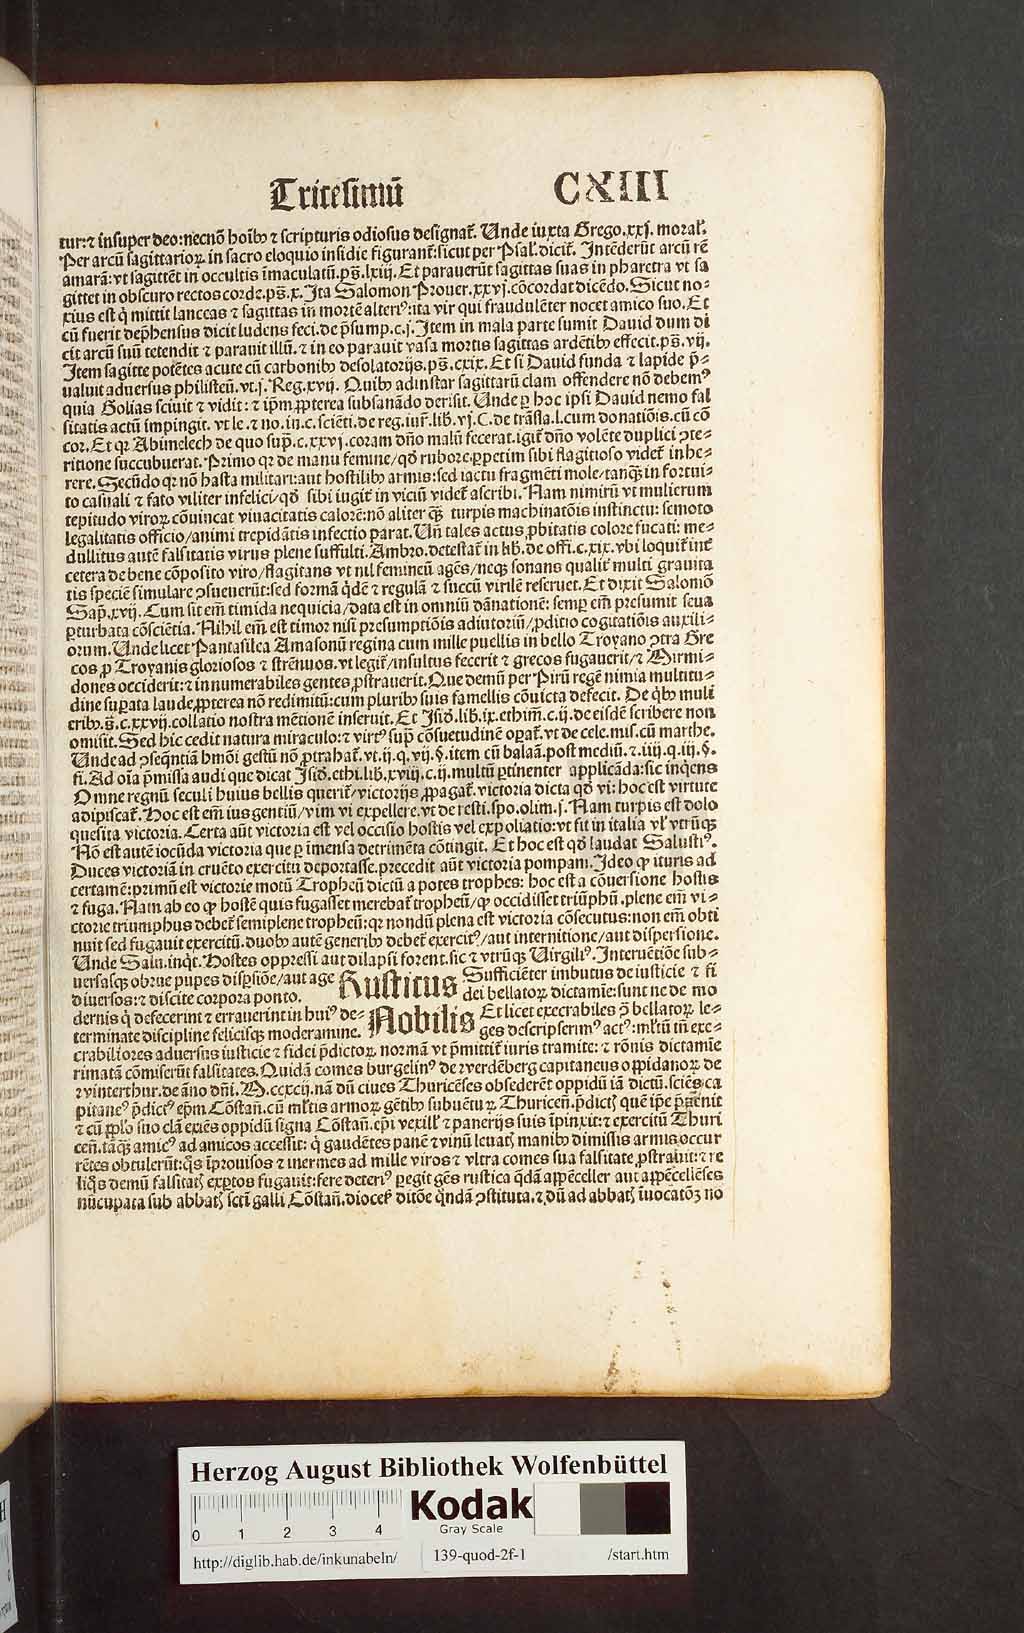 Tricesimū CXIII
tur: ⁊ insuper deo: necnō hoībꝰ ⁊ scripturis odiosus designat᷑. Unde iuxta Grego.xxj. moral᷑.
Per arcū sagittarioꝝ in sacro eloquio insidie figurant᷑: sicut per Psal᷑. dicit᷑. Intēderūt arcū rē
amarā: vt sagittēt in occultis īmaculatū. pꝰ̄. lxiij. Et parauerūt sagittas suas in pharetra vt sa
gittet in obscuro rectos corde. ps̄. x. Ita Salomon Prouer. xxvj. cōcordat dicēdo. Sicut no-
xius est q̇ mittit lanceas ⁊ sagittas in mortē alteriꝰ: ita vir qui fraudulēter nocet amico suo. Et
cū fuerit dep̄hensus dicit ludens feci. de p̄sump. c. j. Item in mala parte sumit Dauid dum di
cit arcū suū tetendit ⁊ parauit illū. ⁊ in eo parauit vasa mortis sagittas ardētibꝰ effecit. ps̄. vij.
Item sagitte potētes acute cū carbonibꝰ desolatorijs. ps̄. cxix. Et si Dauid funda ⁊ lapide p̄-
ualuit aduersus philisteū. vt. j. Reg. xvij. Quibꝰ adinstar sagittarū clam offendere nō debemꝰ
quia Golias sciuit ⁊ vidit: ⁊ ip̄m ꝓpterea subsanādo derisit. Unde ꝑ hoc ipsi Dauid nemo fal
sitatis actū impingit. vt le. ⁊ no. in. c. sciēti. de reg. iur᷑. lib. vj. C. de trāsla. l. cum donatiōis. cū cō
cor. Et qꝛ Abimelech de quo sup̄. c. xxvj. coram dn̄o malū fecerat. igit᷑ dn̄o volēte duplici ꝯte-
ritione succubuerat. Primo qꝛ de manu femine/ qd̄ rubore. ꝑpetim sibi flagitioso videt᷑ inhe-
rere. Secūdo qꝛ nō hasta militari: aut hostilibꝰ armis: sed iactu fragmēti mole/ tanqꝫ in fortui-
to casuali ⁊ fato viliter infelici/ qd̄ sibi iugit᷑ in viciū videt᷑ ascribi. Nam nimirū vt mulierum
tepitudo viroꝝ cōuincat viuacitatis calorē: nō aliter qꝫ̄ turpis machinatōis instinctu: semoto
legalitatis officio/ animi trepidātis infectio parat. Un̄ tales actus ꝓbitatis colore fucati: me-
dullitus autē falsitatis virus plene suffulti. Ambro. detestat᷑ in lib. de offi. c. xix. vbi loquit᷑ int᷑
cetera de bene cōposito viro/ flagitans vt nil femineū agēs/ neqꝫ sonans qualit᷑ multi grauita
tis speciē simulare ꝯsueuerūt: sed formā q̇dē ⁊ regulā ⁊ succū virilē reseruet. Et dixit Salomō
Sap̄. xvij. Cum sit em̄ timida nequicia/ data est in omniū dānationē: semꝑ em̄ presumit seua
ꝑturbata cōscientia. Nihil em̄ est timor nisi presumptiōis adiutoriū/ ꝓditio cogitatiōis auxili-
orum. Unde licet Pantasilea Amasonū regina cum mille puellis in bello Troyano ꝯtra Gre
cos ꝓ Troyanis gloriosos ⁊ strēnuos. vt legit᷑/ insultus fecerit ⁊ grecos fugauerit/ ⁊ Mirmi-
dones occiderit: ⁊ innumerabiles gentes ꝓstrauerit. Que demū per Pirū regē nimia multitu-
dine suꝑata laude ꝓpterea nō redimitū: cum pluribꝰ suis famellis cōuicta defecit. De qͥbꝰ muli
eribꝰ. s̄. c. xxvij. collatio nostra mētionē inseruit. Et Isid̄. lib. ix. ethim̄. c. ij. de eisdē scribere non
omisit. Sed hic cedit natura miraculo: ⁊ virtꝰ sup̄ cōsuetudinē oꝑat᷑. vt de cele. mis. cū marthe.
Unde ad ꝯseqn̄tiā hmōi gestū nō ꝓtrahat᷑. vt. ij. q. vij. §. item cū balaā. post mediū. ⁊. iiij. q. iij. §.
fi. Ad oīa p̄missa audi que dicat Isid̄. ethi. lib. xviij. c. ij. multū ꝑtinenter applicāda: sic inqͥens
Omne regnū seculi huius bellis querit᷑/ victorijs ꝓpagat᷑. victoria dicta qd̄ vi: hoc est virtute
adipiscat᷑. Hoc est em̄ ius gentiū/ vim vi expellere. vt de resti. spo. olim. j. Nam turpis est dolo
quesita victoria. Certa aūt victoria est vel occisio hostis vel expoliatio: vt fit in italia vl᷑ vtrūqꝫ
Nō est autē iocūda victoria que ꝑ imensa detrimēta cōtingit. Et hoc est qd̄ laudat Salustiꝰ.
Duces victoriā in cruēto exercitu deportasse. precedit aūt victoria pompam. Ideo ꝙ ituris ad
certamē: primū est victorie motū Tropheū dictū a potes trophes: hoc est a cōuersione hostis
⁊ fuga. Nam ab eo ꝙ hostē quis fugasset merebat᷑ tropheū/ ꝙ occidisset triūphū. plene em̄ vi-
ctorie triumphus debet᷑ semiplene tropheū: qꝛ nondū plena est victoria cōsecutus: non em̄ obti
nuit sed fugauit exercitū. duobꝰ autē generibꝰ debet᷑ exercitꝰ/ aut internitione/ aut dispersione.
Unde Salu. inqͥt. Hostes oppressi aut dilapsi forent. sic ⁊ vtrūqꝫ Uirgiliꝰ. Interuētiōe sub-
uersasqꝫ obrue pupes disꝑsiōe/ aut age
diuersos: ⁊ discite corpora ponto.
Rusticus Sufficiēter imbutus de iusticie ⁊ fi
dei bellatoꝝ dictamīe: sunt ne de mo
dernis q̇ defecerint ⁊ errauerint in huiꝰ de-
terminate discipline felicisqꝫ moderamine.
Nobilis Et licet execrabiles p̄ bellatoꝝ le-
ges descripserimꝰ actꝰ: ml᷑tū tn̄ exe-
crabiliores aduersus iusticie ⁊ fidei p̄dictoꝝ normā vt p̄mittit᷑ iuris tramite: ⁊ rōnis dictamīe
rimatā cōmiserūt falsitates. Quidā comes burgelinꝰ de ꝛverdēberg capitaneus oppidanoꝝ de
ꝛvinterthur. de āno dn̄i. M. ccxcij. nā dū ciues Thuricēses obsederēt oppidū iā dictū. sciēs ca
pitaneꝰ p̄dictꝰ ep̄m. Cōstan̄. cū ml᷑tis armoꝝ gētibꝰ subuētuꝝ Thuricen̄. p̄dictꝭ quē ip̄e p̄uenit
⁊ cū ppl̄o suo clā exiēs oppidū signa Cōstan̄. ep̄i vexill᷑ ⁊ panerijs suis īpinxit: ⁊ exercitū Thuri
cen̄. tāqꝫ amicꝰ ad amicos accessit: q̇ gaudētes panē ⁊ vinū leuatꝭ manibꝰ dimissis armis occur
rētes obtulerūt: qͦs īprouisos ⁊ inermes ad mille viros ⁊ vltra comes sua falsitate ꝓstrauit: ⁊ re
liqͦs demū falsitatꝭ exꝑtos fugauit: fere deteriꝰ ꝑegit gēs rustica qͣdā appēceller aut appēcellēses
nūcupata sub abbatꝭ scti galli Cōstan̄. dioceẜ ditōe qͦndā ꝯstituta. ⁊ dū ad abbatꝭ īuocatōꝫ no
Herzog August Bibliothek Wolfenbüttel
0 1 2 3 4
Kodak
Gray Scale
http://diglib.hab.de/inkunabeln/ 139-quod-2f-1 /start.htm